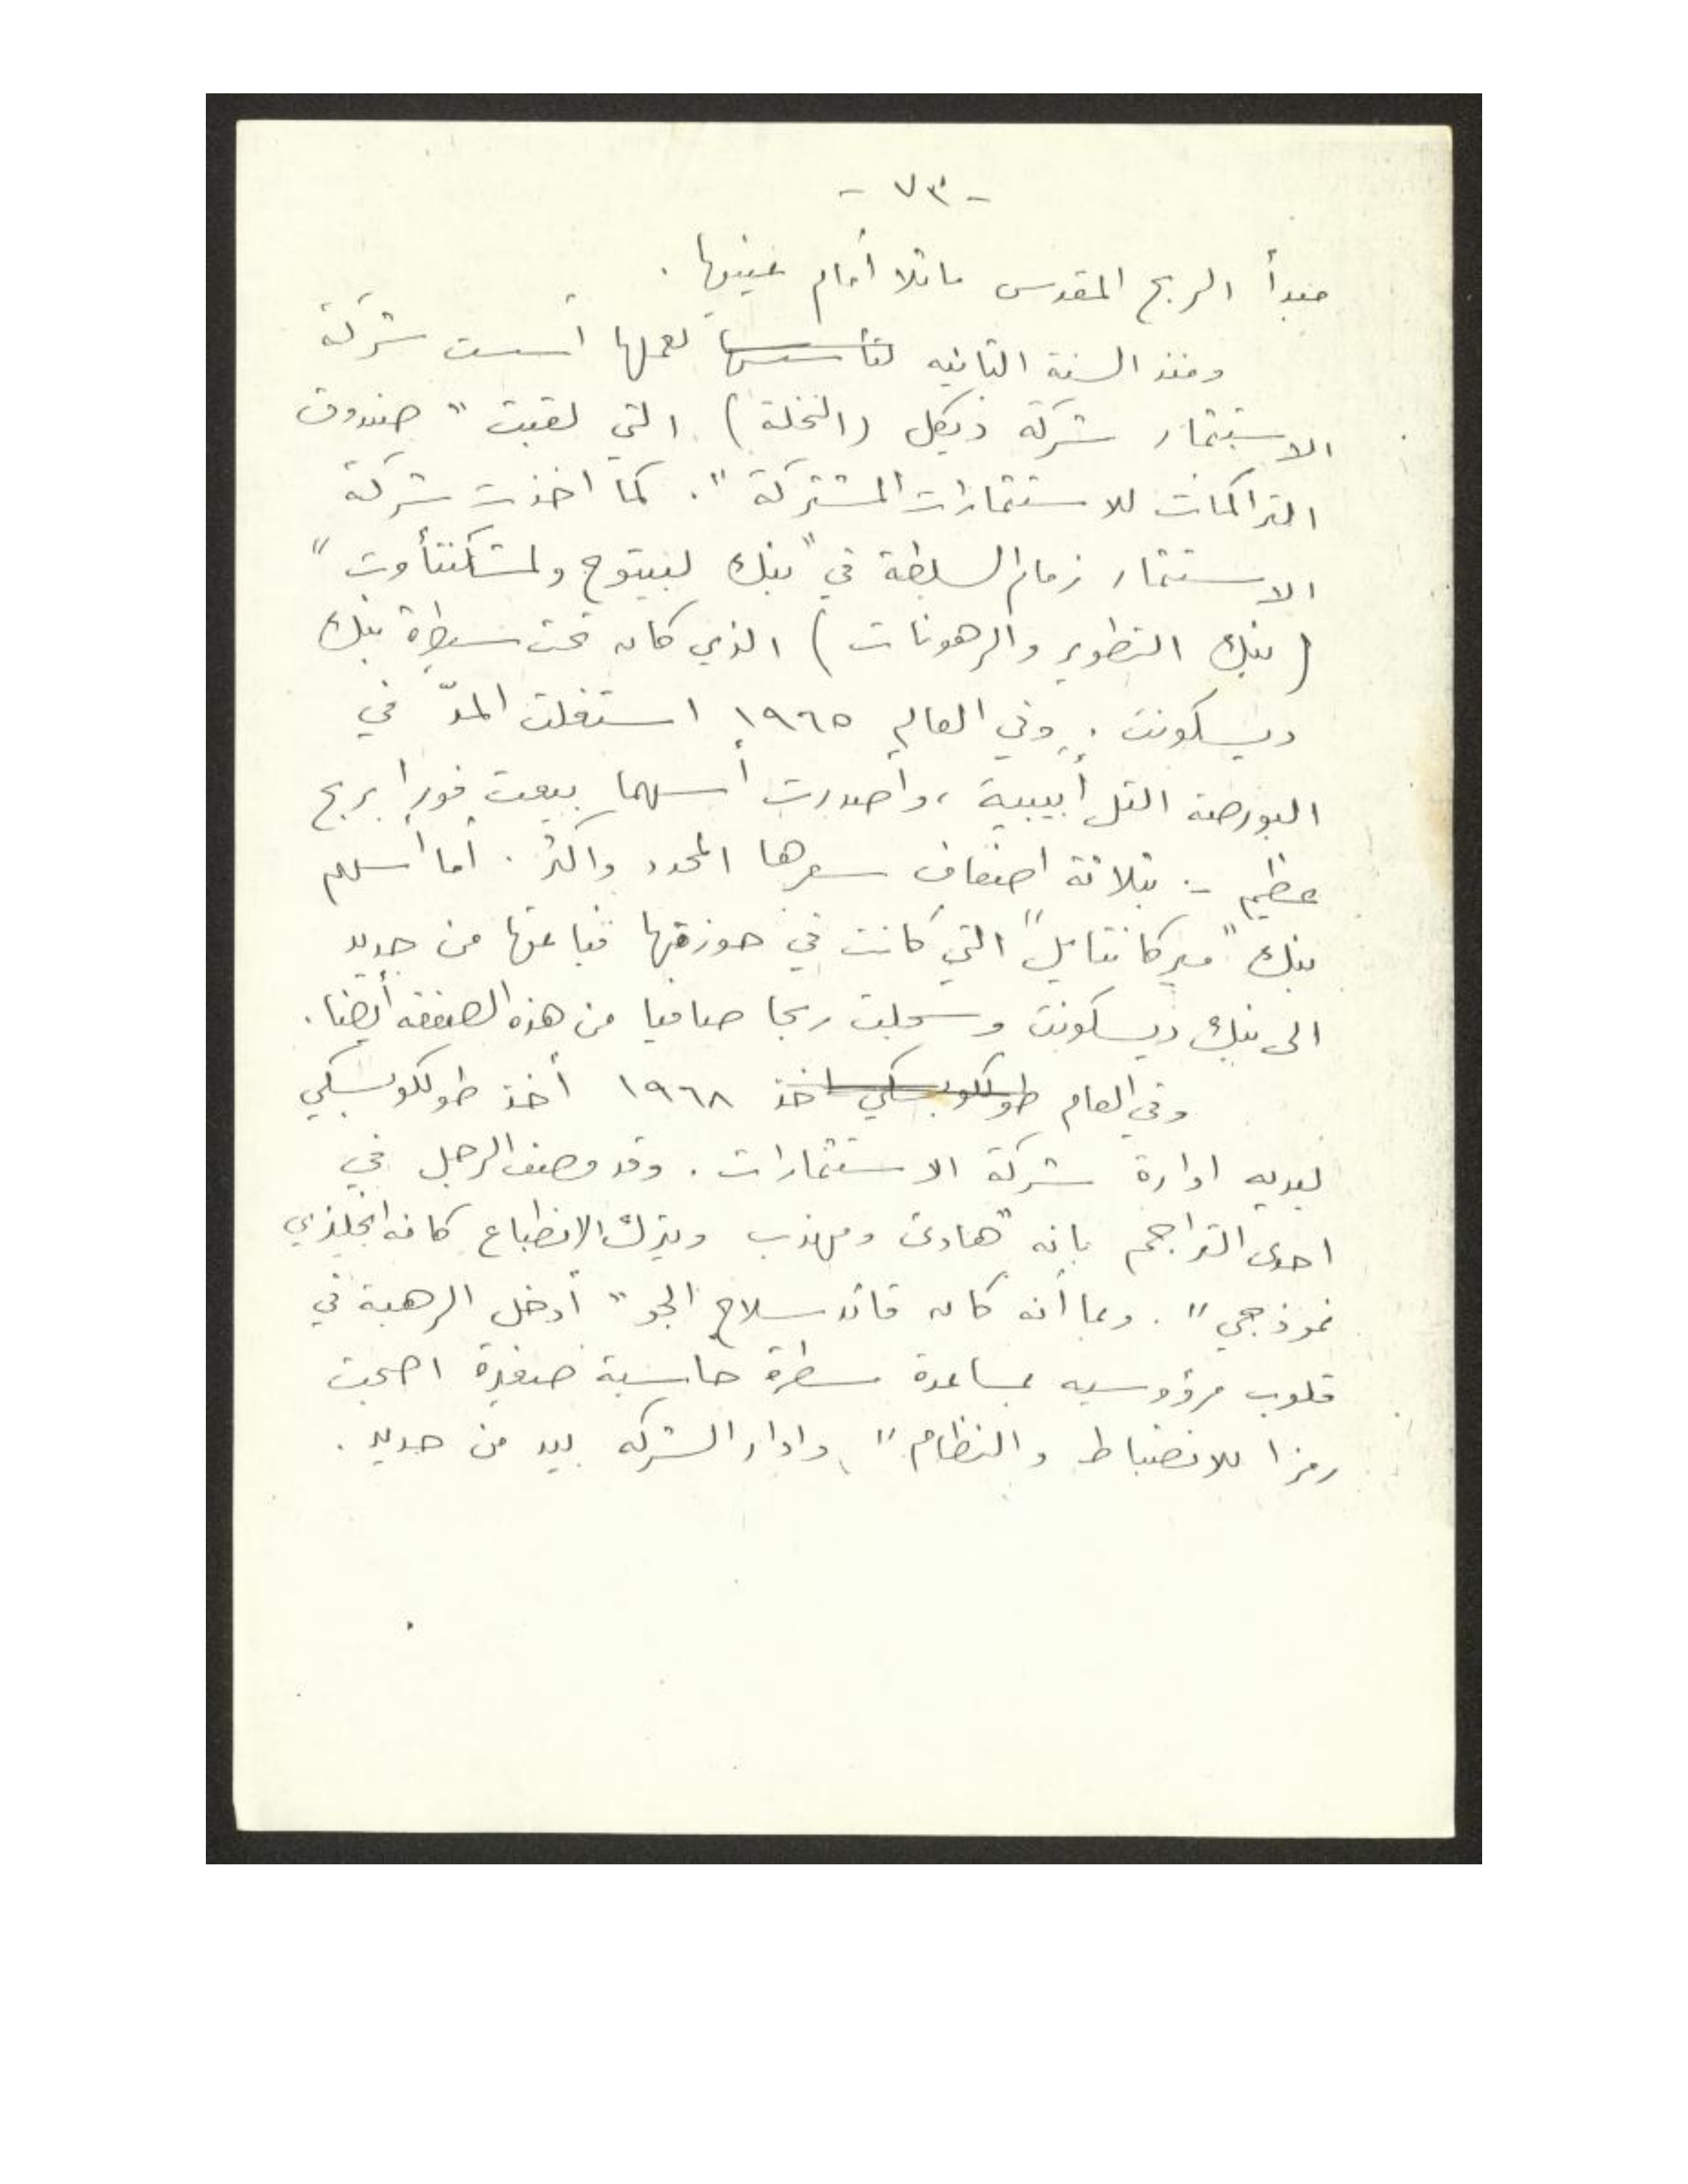 - ٧٣ -
مبدأ الربح المقدس ماثلا أمام عينيها .
ومنذ السنة الثانيه لتأسيسها لعملها أسست شركة
الاستثمار شركة ديكل (النخلة) التي لقبت " صندوق
التراكمات للاستثمارات المشتركة " . كما اخذت شركة
الاستثمار زمام السلطة في " بنك لبيتوح ولمشكنتأوت "
( بنك التطوير والرهونات ) الذي كان تحت سيطرة بنك
ديسكونت . وفي العام ١٩٦٥ استغلت المدّ في
البورصة التل أبيبية ، وأصدرت أسهما بيعت فورا بربح
عظيم - بثلاثة اضعاف سعرها المحدد واكثر . أما أسهم
بنك " ميركانتايل " التي كانت في حوزتها فباعتها من جديد
الى بنك ديسكونت وسجلت ربحا صافيا من هذه الصفقه أيضا .
وفي العام طولكوبسكي اخذ ١٩٦٨ أخذ طولكوبسكي
ليديه ادارة شركة الاستثمارات . وقد وصف الرجل في
احدى التراجم بانه " هادئ ومهذب ويترك الانطباع كانه انجليزي
نموذجي " . وبما أنه كان قائد سلاح الجو " أدخل الرهبة في
قلوب مرؤوسيه بمساعدة مسطرة حاسبة صغيرة اصبحت
رمزا للانضباط والنظام " ، وادار الشركه بيد من حديد .